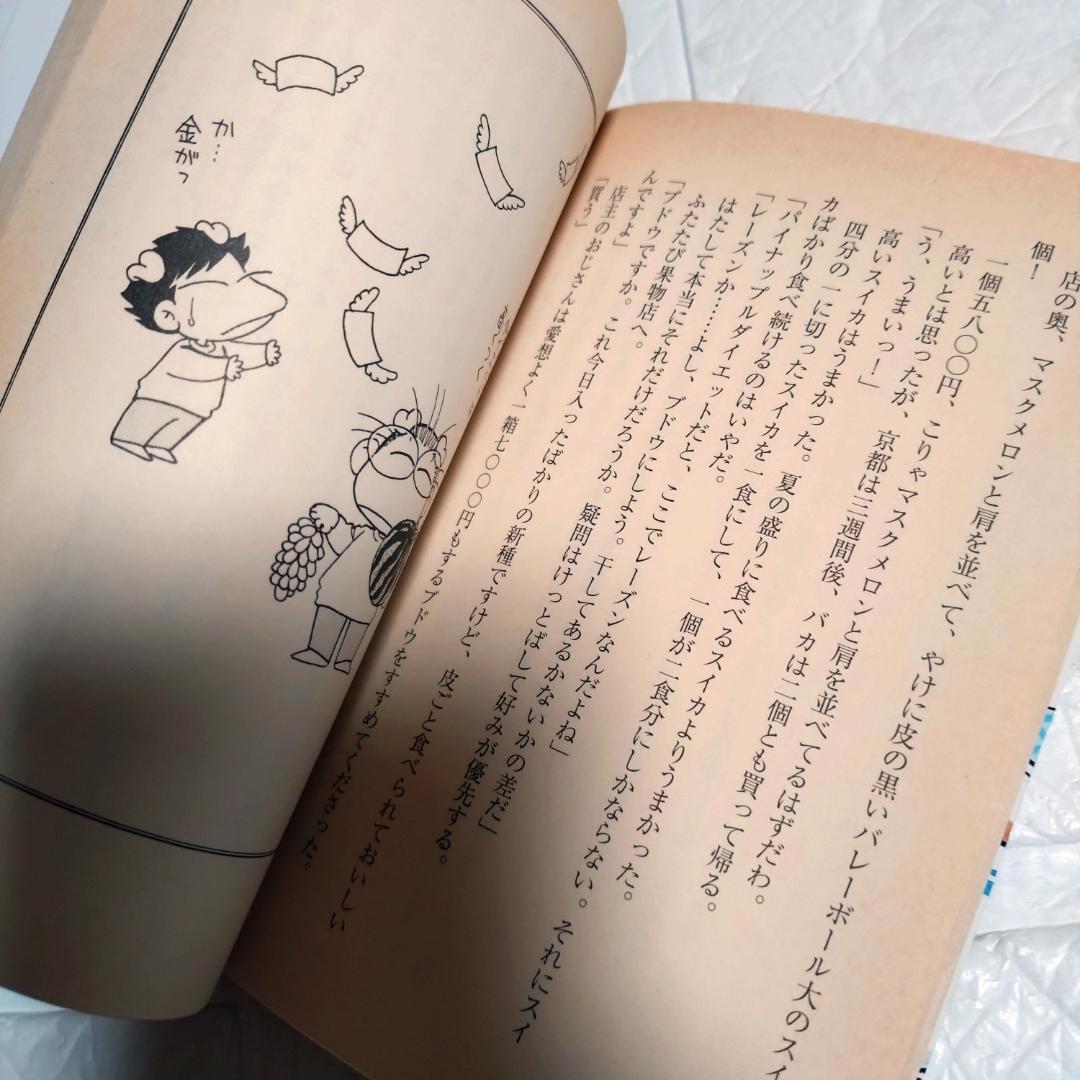 店の奥、マスクメロンと肩を並べて、やけに皮の黒いバレーボール大のスイ
個！
一個五八〇〇円、こりゃマスクメロンと肩を並べてるはずだわ。
高いとは思ったが、京都は三週間後、バカは二個とも買って帰る。
「う、うまいっ！」
高いスイカはうまかった。夏の盛りに食べるスイカよりうまかった。
四分の一に切ったスイカを一食にして、一個が二食分にしかならない。それにスイ
カばかり食べ続けるのはいやだ。
「パイナップルダイエットだと、ここでレーズンなんだよね」
「レーズンか……よし、ブドウにしよう。干してあるかないかの差だ」
はたして本当にそれだけだろうか。疑問はけっとばして好みが優先する。
ふたたび果物店へ。
「ブドウですか。これ今日入ったばかりの新種ですけど、皮ごと食べられておいしい
んですよ」
店主のおじさんは愛想よく一箱七〇〇〇円もするブドウをすすめてくださった。
「買う」
か…
金がっ